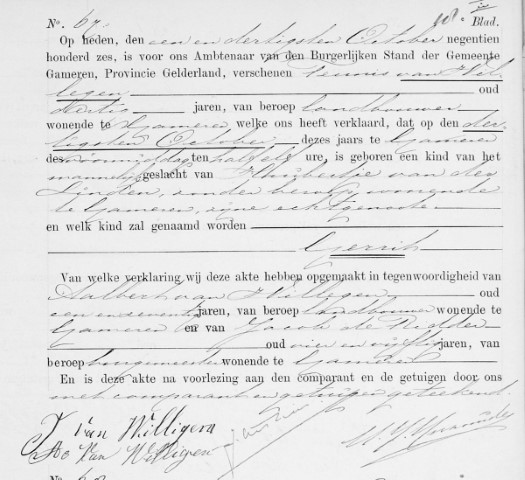 No. 67. 18e Blad.
Op heden, den een en dertigsten October negentien
honderd zes, is voor ons Ambtenaar van den Burgerlijken Stand der Gemeente
Gameren, Provincie Gelderland, verschenen Teunis van Wil-
ligen oud
dertig jaren, van beroep landbouwer
wonende te Gameren welke ons heeft verklaard, dat op den der-
tigsten October dezes jaars te Gameren
des voormiddags ten half elf ure, is geboren een kind van het
mannelijk geslacht van Huibertje van der
Linden, zonder beroep, wonende
te Gameren, zijne echtgenoote
en welk kind zal genaamd worden
Gerrit
Van welke verklaring wij deze akte hebben opgemaakt in tegenwoordigheid van
Aalbert van Willigen oud
een en zeventig jaren, van beroep landbouwer wonende te
Gameren en van Jacob de Ridder
oud vier en vijftig jaren, van
beroep burgemeester wonende te Gameren
En is deze akte na voorlezing aan den comparant en de getuigen door ons
met comparant en getuigen geteekend.
T van Willigen
van Willigen